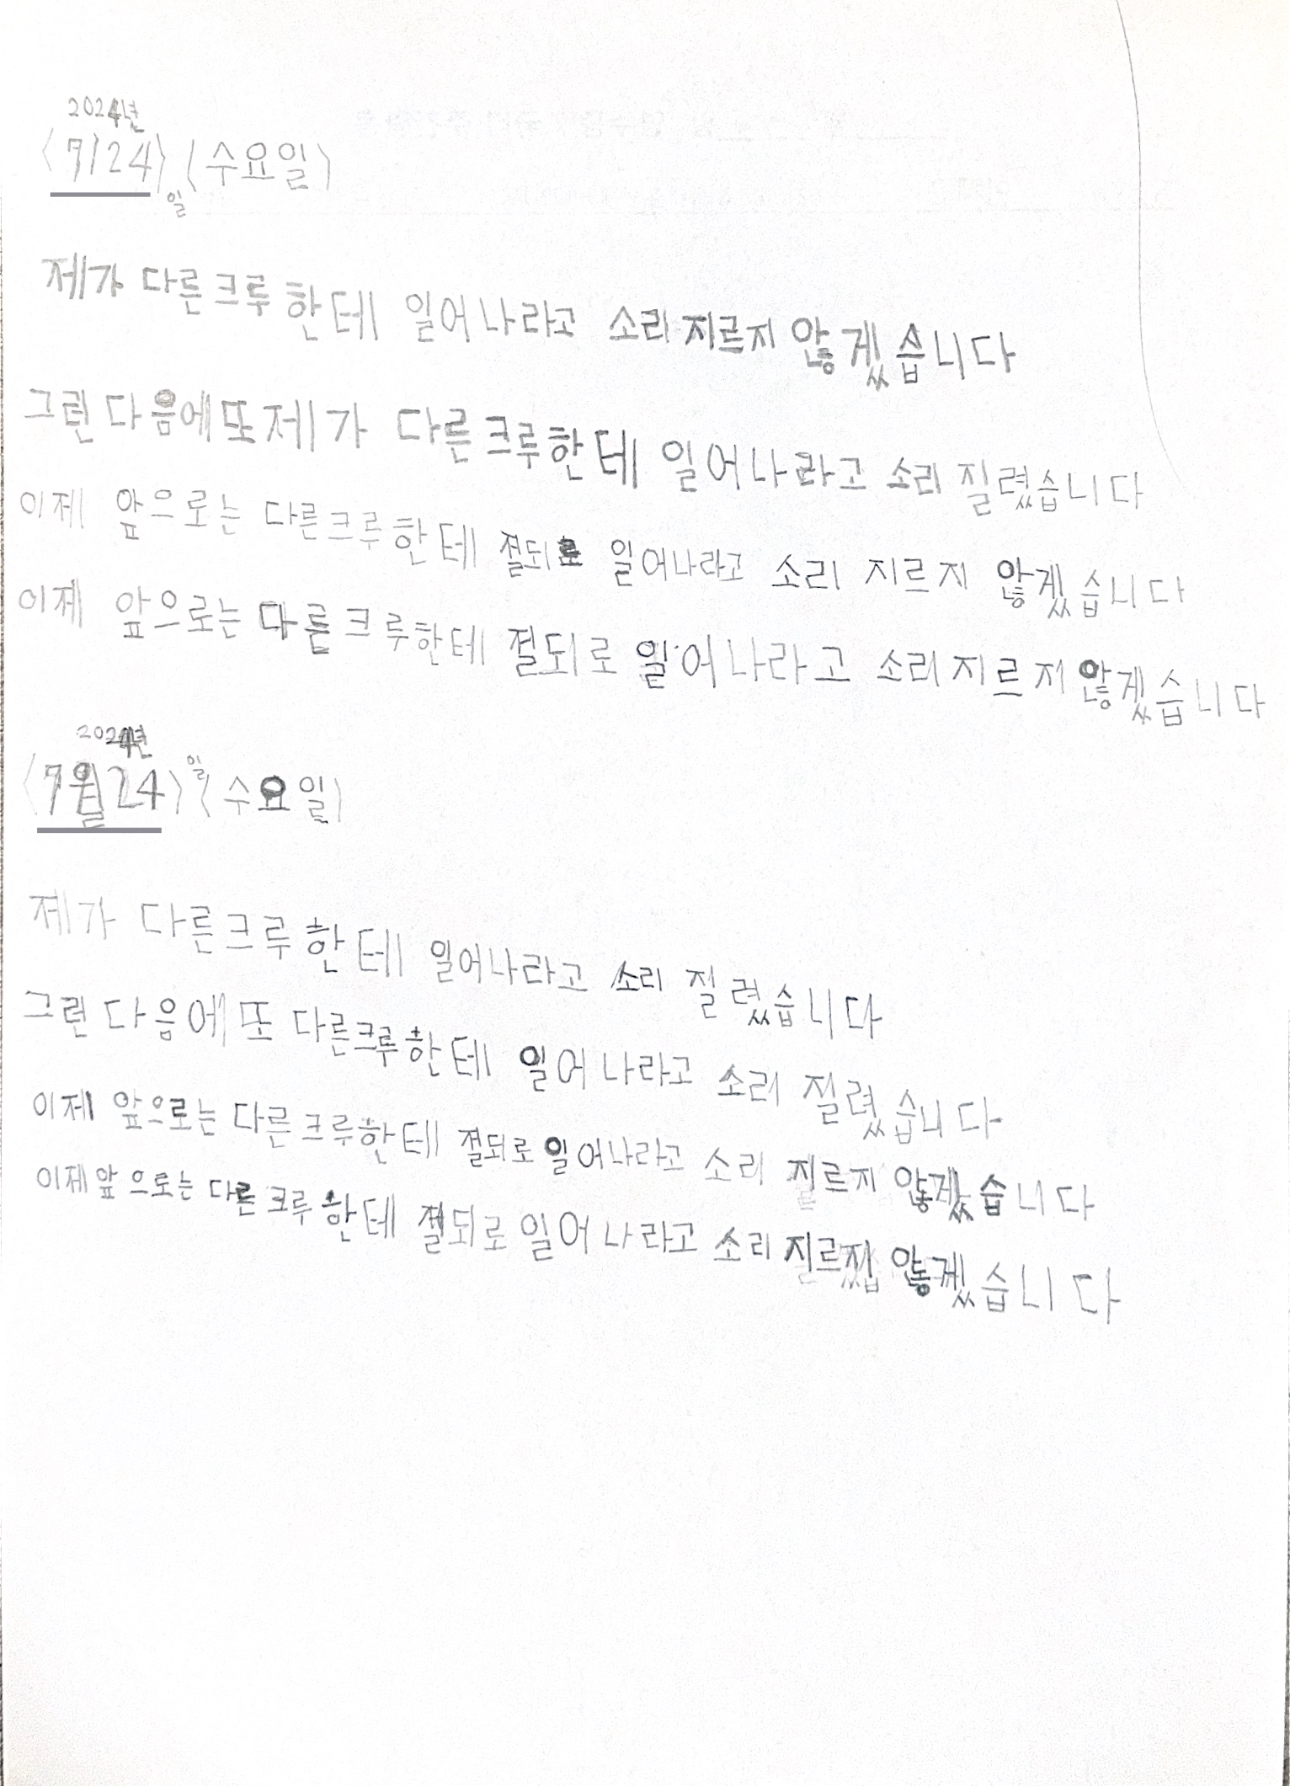 2024년
〈7/24〉일 (수요일)
제가 다른크루한테 일어나라고 소리지르지 않겠습니다
그런다음에또제가 다른크루한테 일어나라고 소리질렀습니다
이제 앞으로는 다른크루한테 절되로 일어나라고 소리 지르지 않겠습니다
이제 앞으로는 다른크루한테 절되로 일어나라고 소리지르지않겠습니다
2024년
〈7월24〉일 (수요일)
제가 다른크루한테 일어나라고 소리 질렀습니다
그런다음에또 다른크루한테 일어나라고 소리 질렀습니다
이제 앞으로는 다른크루한테 절되로 일어나라고 소리 지르지 않겠습니다
이제앞으로는 다른크루한테 절되로 일어나라고 소리 않겠습니다